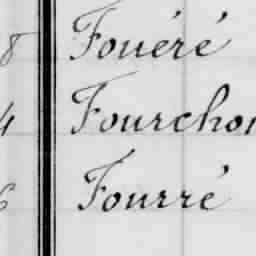 8 Fouéré
4 Fourchon
6 Fourré